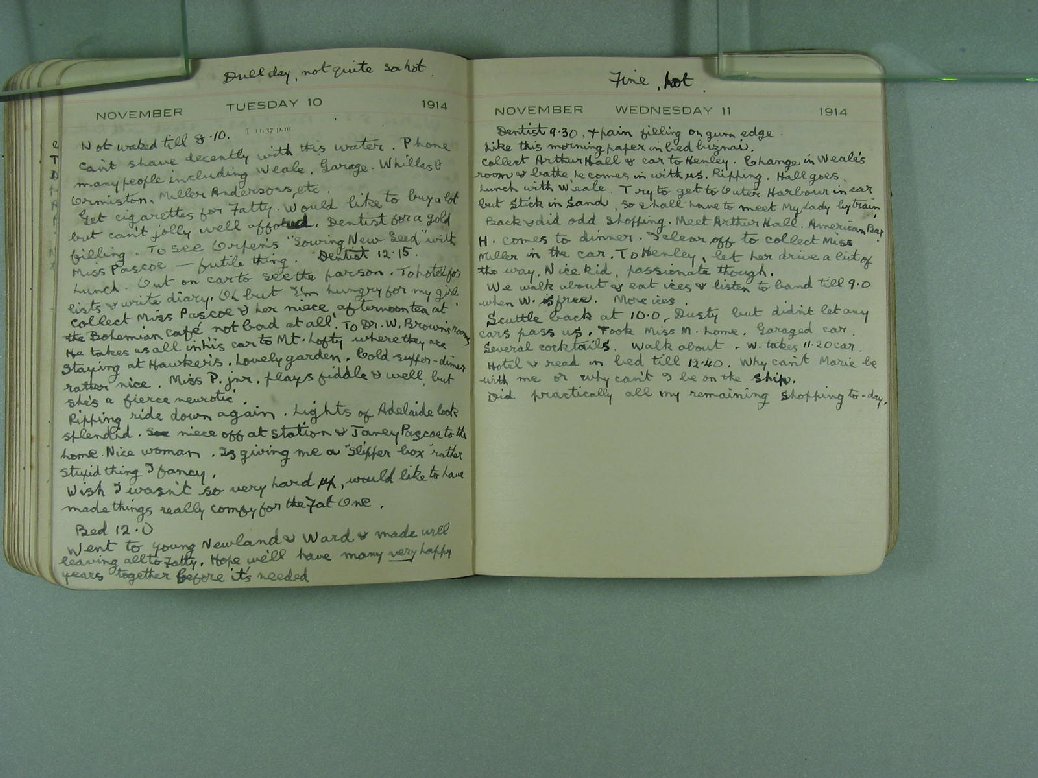 Dull day, not quite so hot.
NOVEMBER TUESDAY 10 1914
Not waked till 8.10.
Can't shave decently with this water. Phone
many people including Weale, Garage, Whillas &
Ormiston, Muller Andersons, etc
Get cigarettes for Fatty. Would like to buy a lot
but can't jolly well afford. Dentist for a gold
filling. To see Orpen's "Sowing New Seed" with
Miss Pascoe — futile thing. Dentist 12.15.
Lunch. Out on car to see the parson. To hotel for
lists & write diary. Oh but I'm hungry for my girl
Collect Miss Pascoe & her niece afternoon tea at
the Bohemian café not bad at all. To Dr. W. Browne's
He takes us all in his car to Mt. Lofty where they are
staying at Hawker's. Lovely garden. Cold supper-dinner
rather nice. Miss P. jnr. plays fiddle & well, but
she's a fierce neurotic.
Ripping ride down again. Lights of Adelaide look
splendid. See niece off at station & Janey Pascoe to the
home. Nice woman. Is giving me a "slipper box" rather
stupid thing I fancy.
Wish I wasn't so very hard up, would like to have
made things really comfy for the Fat One.
Bed 12.0
Went to young Newland & Ward & made will
leaving all to Fatty. Hope we'll have many very happy
years together before its needed
Fine, hot.
NOVEMBER WEDNESDAY 11 1914
Dentist 9.30. & pain filling on gum edge.
Like this morning paper in bed buznai.
Collect Arthur Hall & car to Henley. Change in Weale's
room & bathe he comes in with us. Ripping. Hall goes.
Lunch with Weale. Try to get to Outer Harbour in car
but stick in sand, so shall have to meet My Lady by train.
Back & did odd shopping. Meet Arthur Hall. American Bar
H. comes to dinner. I clear off to collect Miss
Muller in the car. To Henley, let her drive a bit of
the way. Nice kid, passionate though.
We walk about & eat ices & listen to band till 9.0
when W. is free. More ices.
Scuttle back at 10.0. Dusty but didn't let any
cars pass us. Took Miss M. home. Garaged car.
Several cocktails. Walk about. W. takes 11.20 car.
Hotel & read in bed till 12.40. Why can't Marie be
with me or why can't I be on the ship.
Did practically all my remaining shopping to-day.